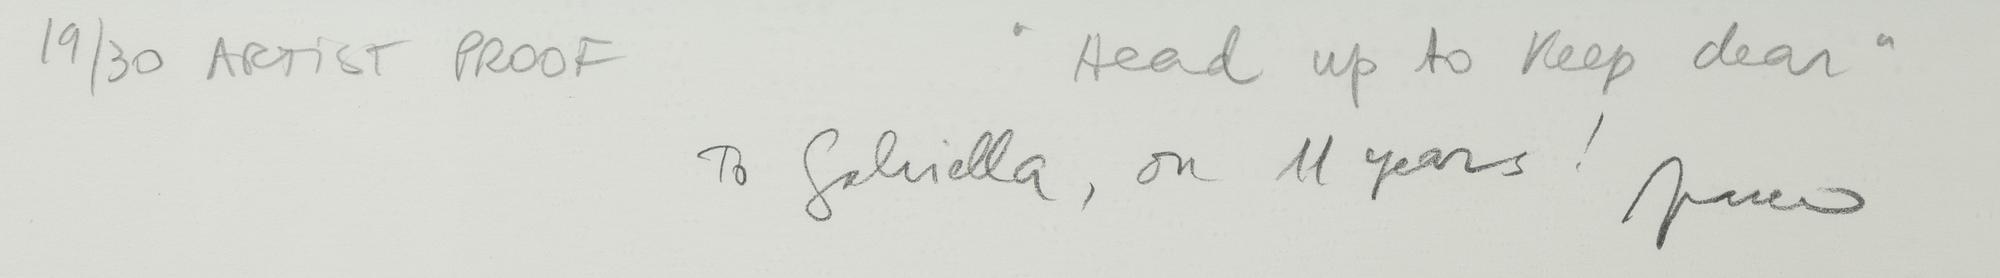 19/30 ARTIST PROOF "Head up to Keep dear"
To Gabriella, on 11 years!